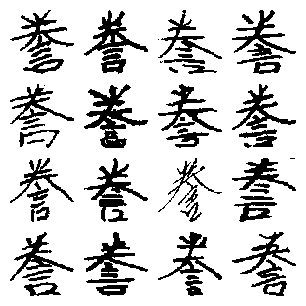 誊誊誊誊
誊誊誊誊
誊誊誊誊
誊誊誊誊